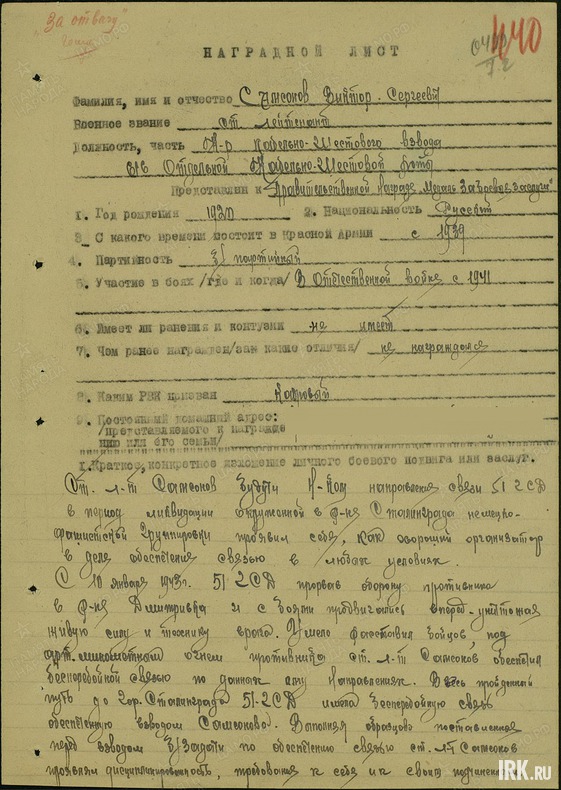 "За отвагу"
440
НАГРАДНОЙ ЛИСТ
Фамилия, имя и отчество Самсонов Виктор Сергеевич
Военное звание ст. лейтенант
Должность, часть К-р Кабельно-Шестового взвода
Отдельной Кабельно-Шестовой роты
Представлен к Правительственной Награде Медаль "За боевые заслуги"
1. Год рождения 1920 2. Национальность Русский
3. С какого времени состоит в Красной Армии с 1939
4. Партийность б/партийный
5. Участие в боях /где и когда/ В Отечественной войне с 1941
6. Имеет ли ранения и контузии не имеет
7. Чем ранее награжден /за какие отличия/ не награждался
8. Каким РВК призван Кадровый
9. Постоянный домашний адрес:
/представляемого к награжде
нию или его семьи/
I. Краткое конкретное изложение личного боевого подвига или заслуг.
Ст. л-т Самсонов будучи Н-ком направления связи 51 2 СД
в период ликвидации окруженной в р-не Сталинграда немецко-
фашистской Группировки проявил себя, как хороший организатор
в деле обеспечения связью в любых условиях.
С 10 января 1943г. 51 2 СД прорвав оборону противника
в р-не Дмитривка и с боями продвигались вперед уничтожая
живую силу и технику врага. Умело расставив бойцов под
арт. минометным огнем противника ст. л-т Самсонов обеспечил
бесперебойной связью по данному ему направлению. Весь пройденный
путь до гор. Сталинграда 51 2 СД имела бесперебойную связь
обеспеченную взводом Самсонова. Выполняя образцово поставленные
перед взводом задачи по обеспечению связью ст. л-т Самсонов
проявлял дисциплинированность, требования к себе и к своим подчиненным
IRK.RU